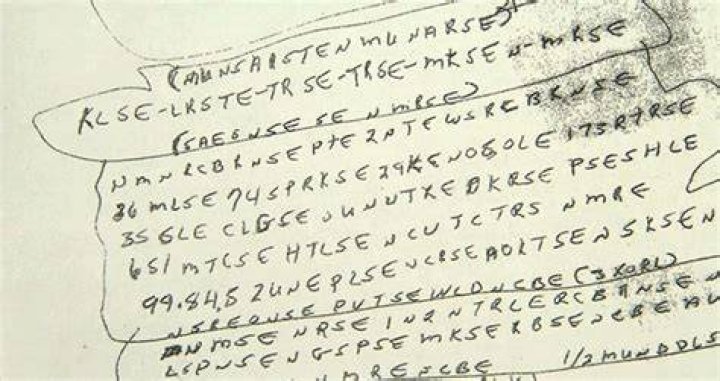 (MUNSARSTEN MUNARSE)
KLSE-LRSTE-TRSE-TRSE-MKSEN-MRSE
(SAEGNSE SE N MRSE)
NMNRCBRNSE PTE2NTEWSRCBRNSE
36 MLSE 74SPRKSE 29KENOSOLE 173RTRSE
35 GLE CLGSE UNUTXE DKRSE PSESHLE
651 MTCSE HTLSE NCUTCTRS NMRE
99.84.5 2UNEPLSE NCRSE AOLTSENSKSEN
NSREONSE PVTSE WLD NCBE (3XORL)
NMSE NRSE IN2NTRLERCBRNSE
LSPNSE NGSPSE MKSERBSENCBE
MRENCBE 1/2 MUNDDLS